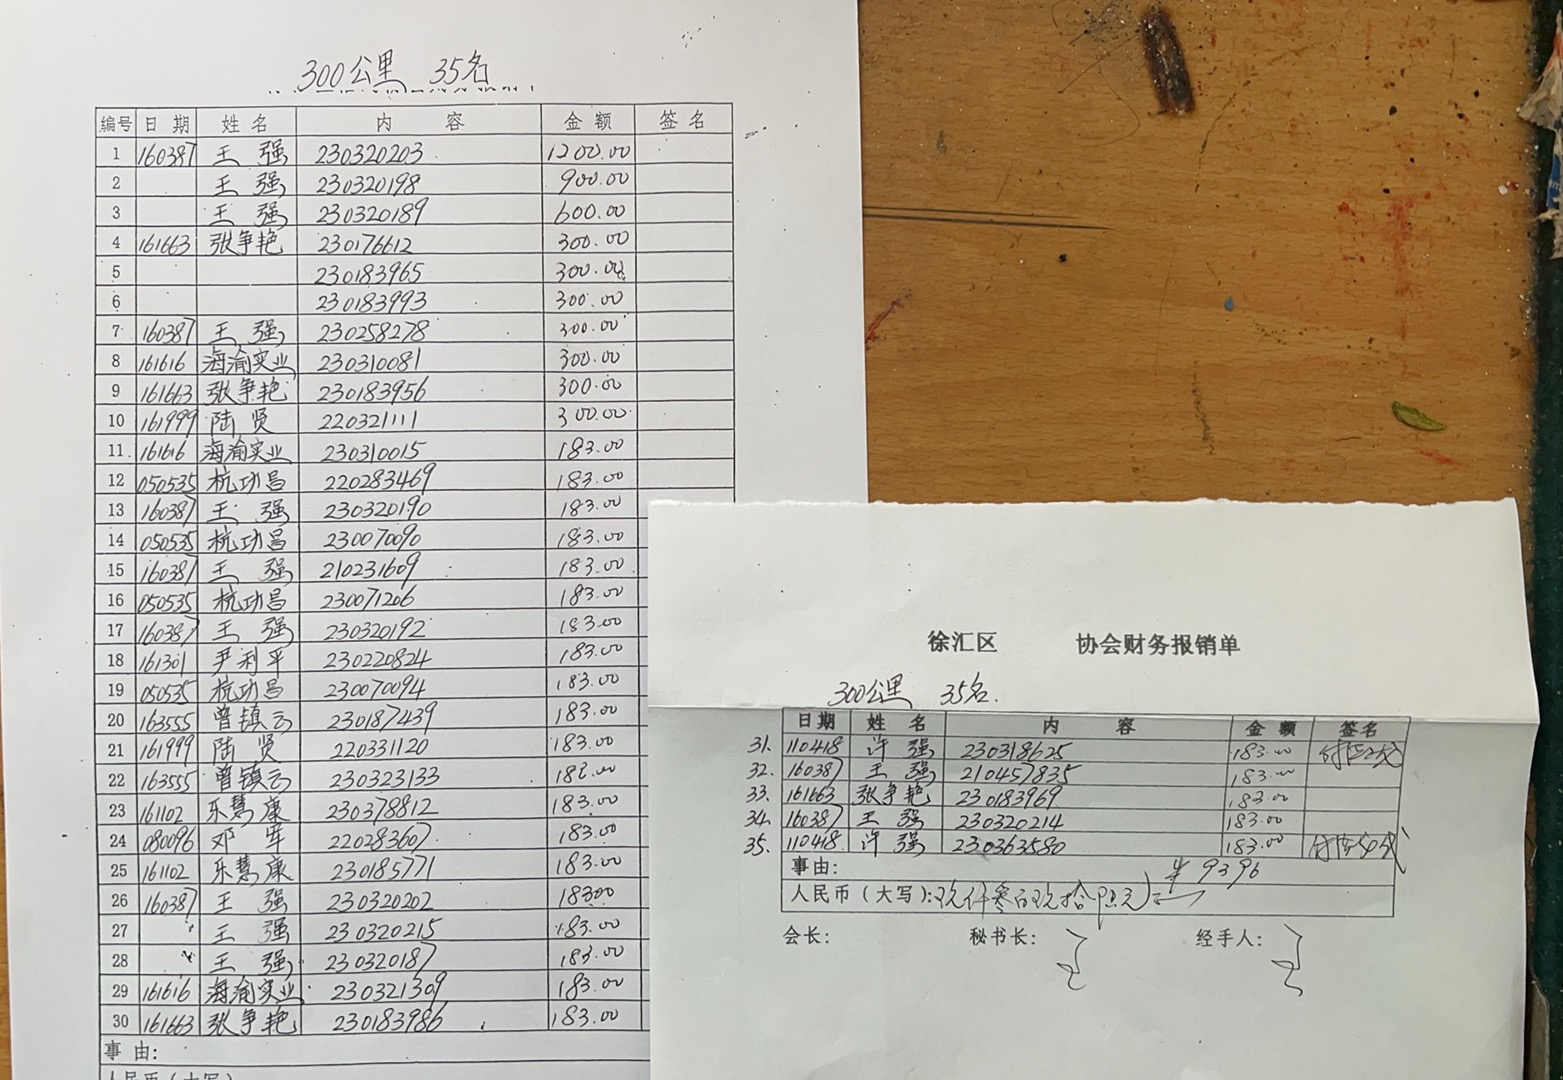 300公里 35名
编号 日期 姓名 内容 金额 签名
1 160387 王强 230320203 1200.00
2 王强 230320198 900.00
3 王强 230320189 600.00
4 161663 张争艳 230176612 300.00
5 230183965 300.00
6 230183993 300.00
7 160387 王强 230258278 300.00
8 161616 海渝实业 230310081 300.00
9 161663 张争艳 230183956 300.00
10 161999 陆贤 220321111 300.00
11 161616 海渝实业 230310015 183.00
12 050535 杭功昌 220283469 183.00
13 160387 王强 230320190 183.00
14 050535 杭功昌 230070090 183.00
15 160387 王强 210231609 183.00
16 050535 杭功昌 230071206 183.00
17 160387 王强 230320192 183.00
18 161301 尹利平 230220824 183.00
19 050535 杭功昌 230070094 183.00
20 163555 曾镇云 230187439 183.00
21 161999 陆贤 220331120 183.00
22 163555 曾镇云 230323133 183.00
23 161102 乐慧康 230378812 183.00
24 080096 邓军 220283607 183.00
25 161102 乐慧康 230185771 183.00
26 160387 王强 230320202 183.00
27 王强 230320215 183.00
28 王强 230320187 183.00
29 161616 海渝实业 230321309 183.00
30 161663 张争艳 230183986 183.00
事由:
人民币(大写)
徐汇区 协会财务报销单
300公里 35名.
日期 姓名 内容 金额 签名
31. 110418 许强 230318625 183.00
32. 160387 王强 210457835 183.00
33. 161663 张争艳 230183969 183.00
34. 160387 王强 230320214 183.00
35. 110418 许强 230363580 183.00
事由: ¥9396
人民币(大写):玖仟叁百玖拾陆元
会长: 秘书长: 经手人: